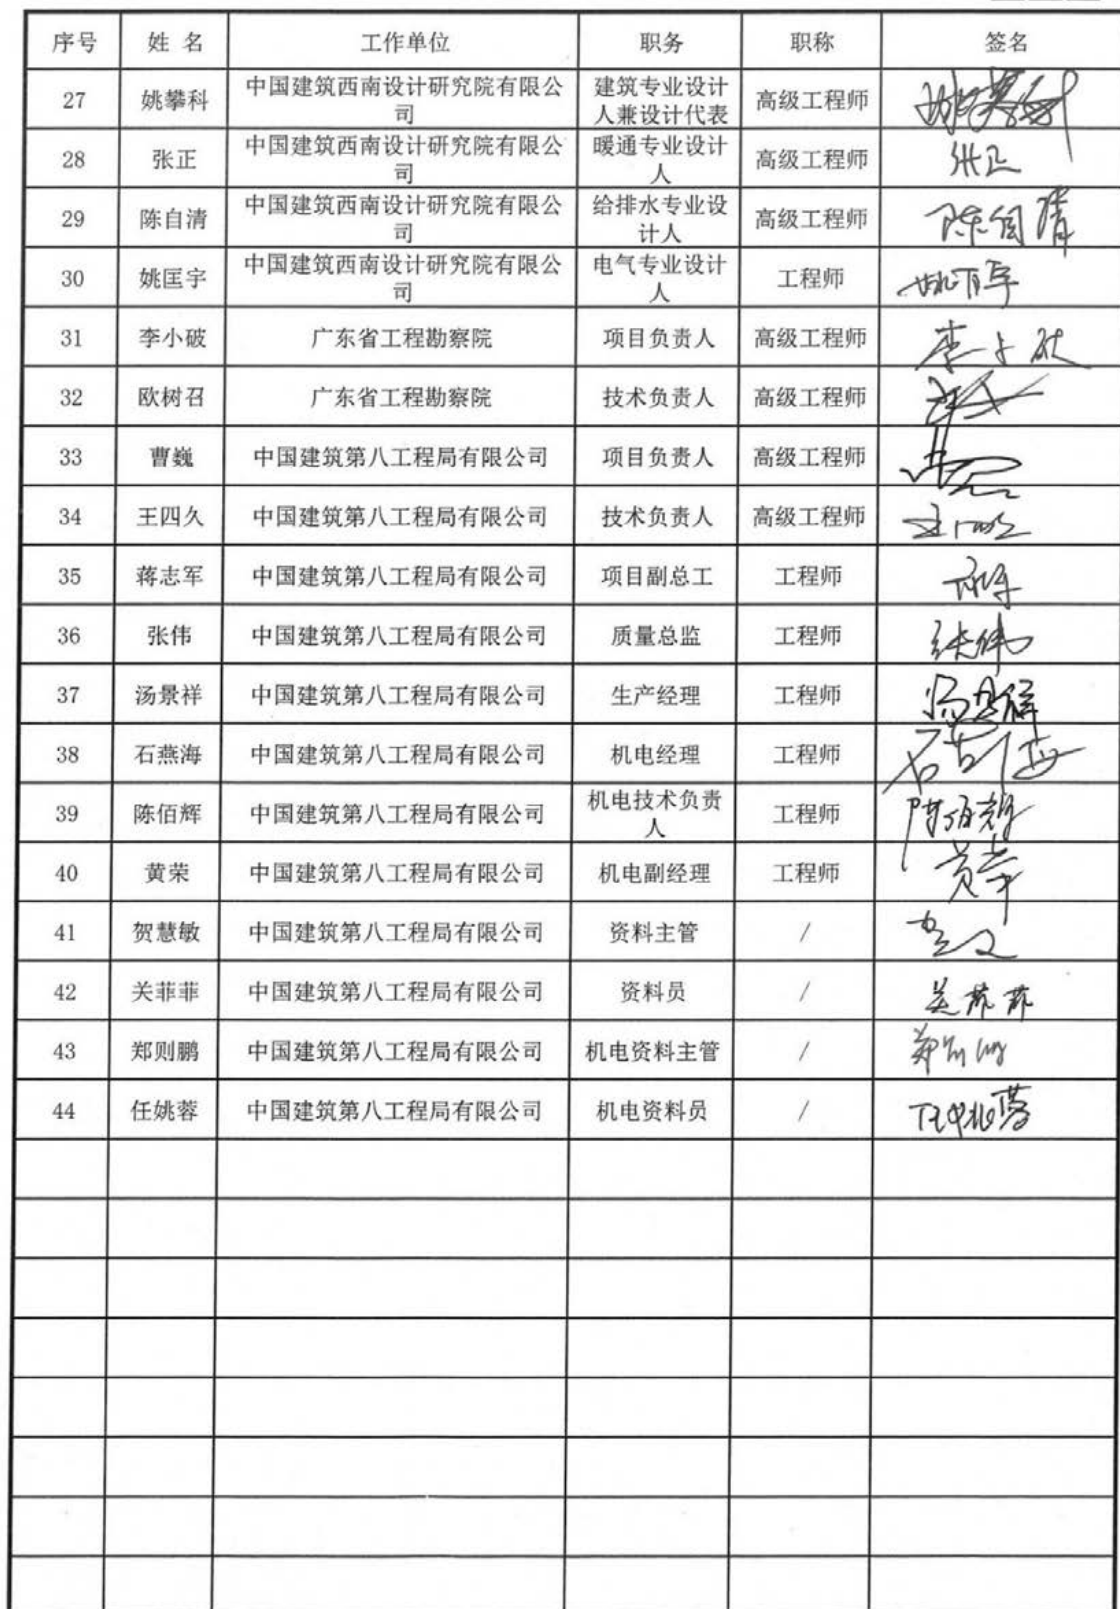 序号 姓 名 工作单位 职务 职称 签名
27 姚攀科 中国建筑西南设计研究院有限公 建筑专业设计 高级工程师 姚攀科
司 人兼设计代表
28 张正 中国建筑西南设计研究院有限公 暖通专业设计 高级工程师 张正
司 人
29 陈自清 中国建筑西南设计研究院有限公 给排水专业设 高级工程师 陈自清
司 计人
30 姚匡宇 中国建筑西南设计研究院有限公 电气专业设计 工程师
司 人
31 李小破 广东省工程勘察院 项目负责人 高级工程师 李小破
32 欧树召 广东省工程勘察院 技术负责人 高级工程师
33 曹巍 中国建筑第八工程局有限公司 项目负责人 高级工程师
34 王四久 中国建筑第八工程局有限公司 技术负责人 高级工程师
35 蒋志军 中国建筑第八工程局有限公司 项目副总工 工程师
36 张伟 中国建筑第八工程局有限公司 质量总监 工程师 张伟
37 汤景祥 中国建筑第八工程局有限公司 生产经理 工程师 汤景祥
38 石燕海 中国建筑第八工程局有限公司 机电经理 工程师 石燕海
39 陈佰辉 中国建筑第八工程局有限公司 机电技术负责 工程师 陈佰辉
人
40 黄荣 中国建筑第八工程局有限公司 机电副经理 工程师 黄荣
41 贺慧敏 中国建筑第八工程局有限公司 资料主管 /
42 关菲菲 中国建筑第八工程局有限公司 资料员 / 关菲菲
43 郑则鹏 中国建筑第八工程局有限公司 机电资料主管 / 郑则鹏
44 任姚蓉 中国建筑第八工程局有限公司 机电资料员 / 任姚蓉